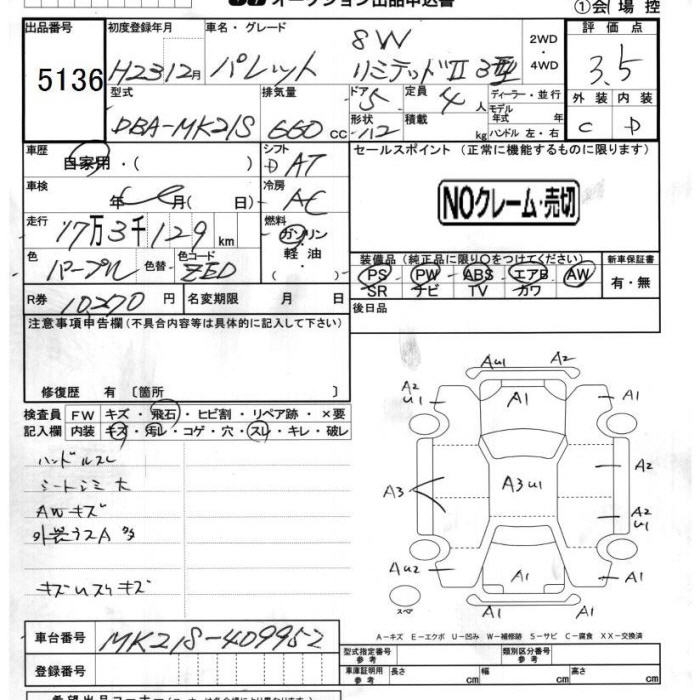 オークション出品申込書
①会場控
出品番号 5136
初度登録年月 H23 12月
車名・グレード パレット SW リミテッドⅡ 3型
2WD・4WD
評価点 3.5
型式 DBA-MK21S
排気量 660 cc
ドア 5
形状
定員 4人
積載 kg
ディーラー・並行
モデル年式 年式
ハンドル 左・右
外装 C
内装 D
車歴 自家用・( )
シフト D AT
セールスポイント (正常に機能するものに限ります)
車検 年 月( 日)
冷房 AC
NOクレーム・売切
走行 17万3千129 km
燃料 ガソリン・軽油・( )
色 パープル 色替
色コード ZED
装備品 (純正品に限り○をつけてください)
新車保証書 有・無
PS PW ABS エアB AW
SR ナビ TV カワ
R券 10270 円
名変期限 月 日
後日品
注意事項申告欄 (不具合内容等は具体的に記入して下さい)
修復歴 有〔箇所 〕
検査員記入欄
FW キズ・飛石・ヒビ割・リペア跡・×要
内装 キズ・汚レ・コゲ・穴・スレ・キレ・破レ
ハンドルスレ
シートシミ大
AWキズ
外装うスA多
AU1 A2
A2 U1 A1 A1
A3 A3U1 A2
A2 U1
AU2 A1 A1
A1 A1
スペア
A-キズ E-エクボ U-凹み W-補修跡 S-サビ C-腐食 XX-交換済
車台番号 MK21S-409952
登録番号
型式指定番号 参考
類別区分番号 参考
車庫証明用 参考 長さ cm 幅 cm 高さ cm